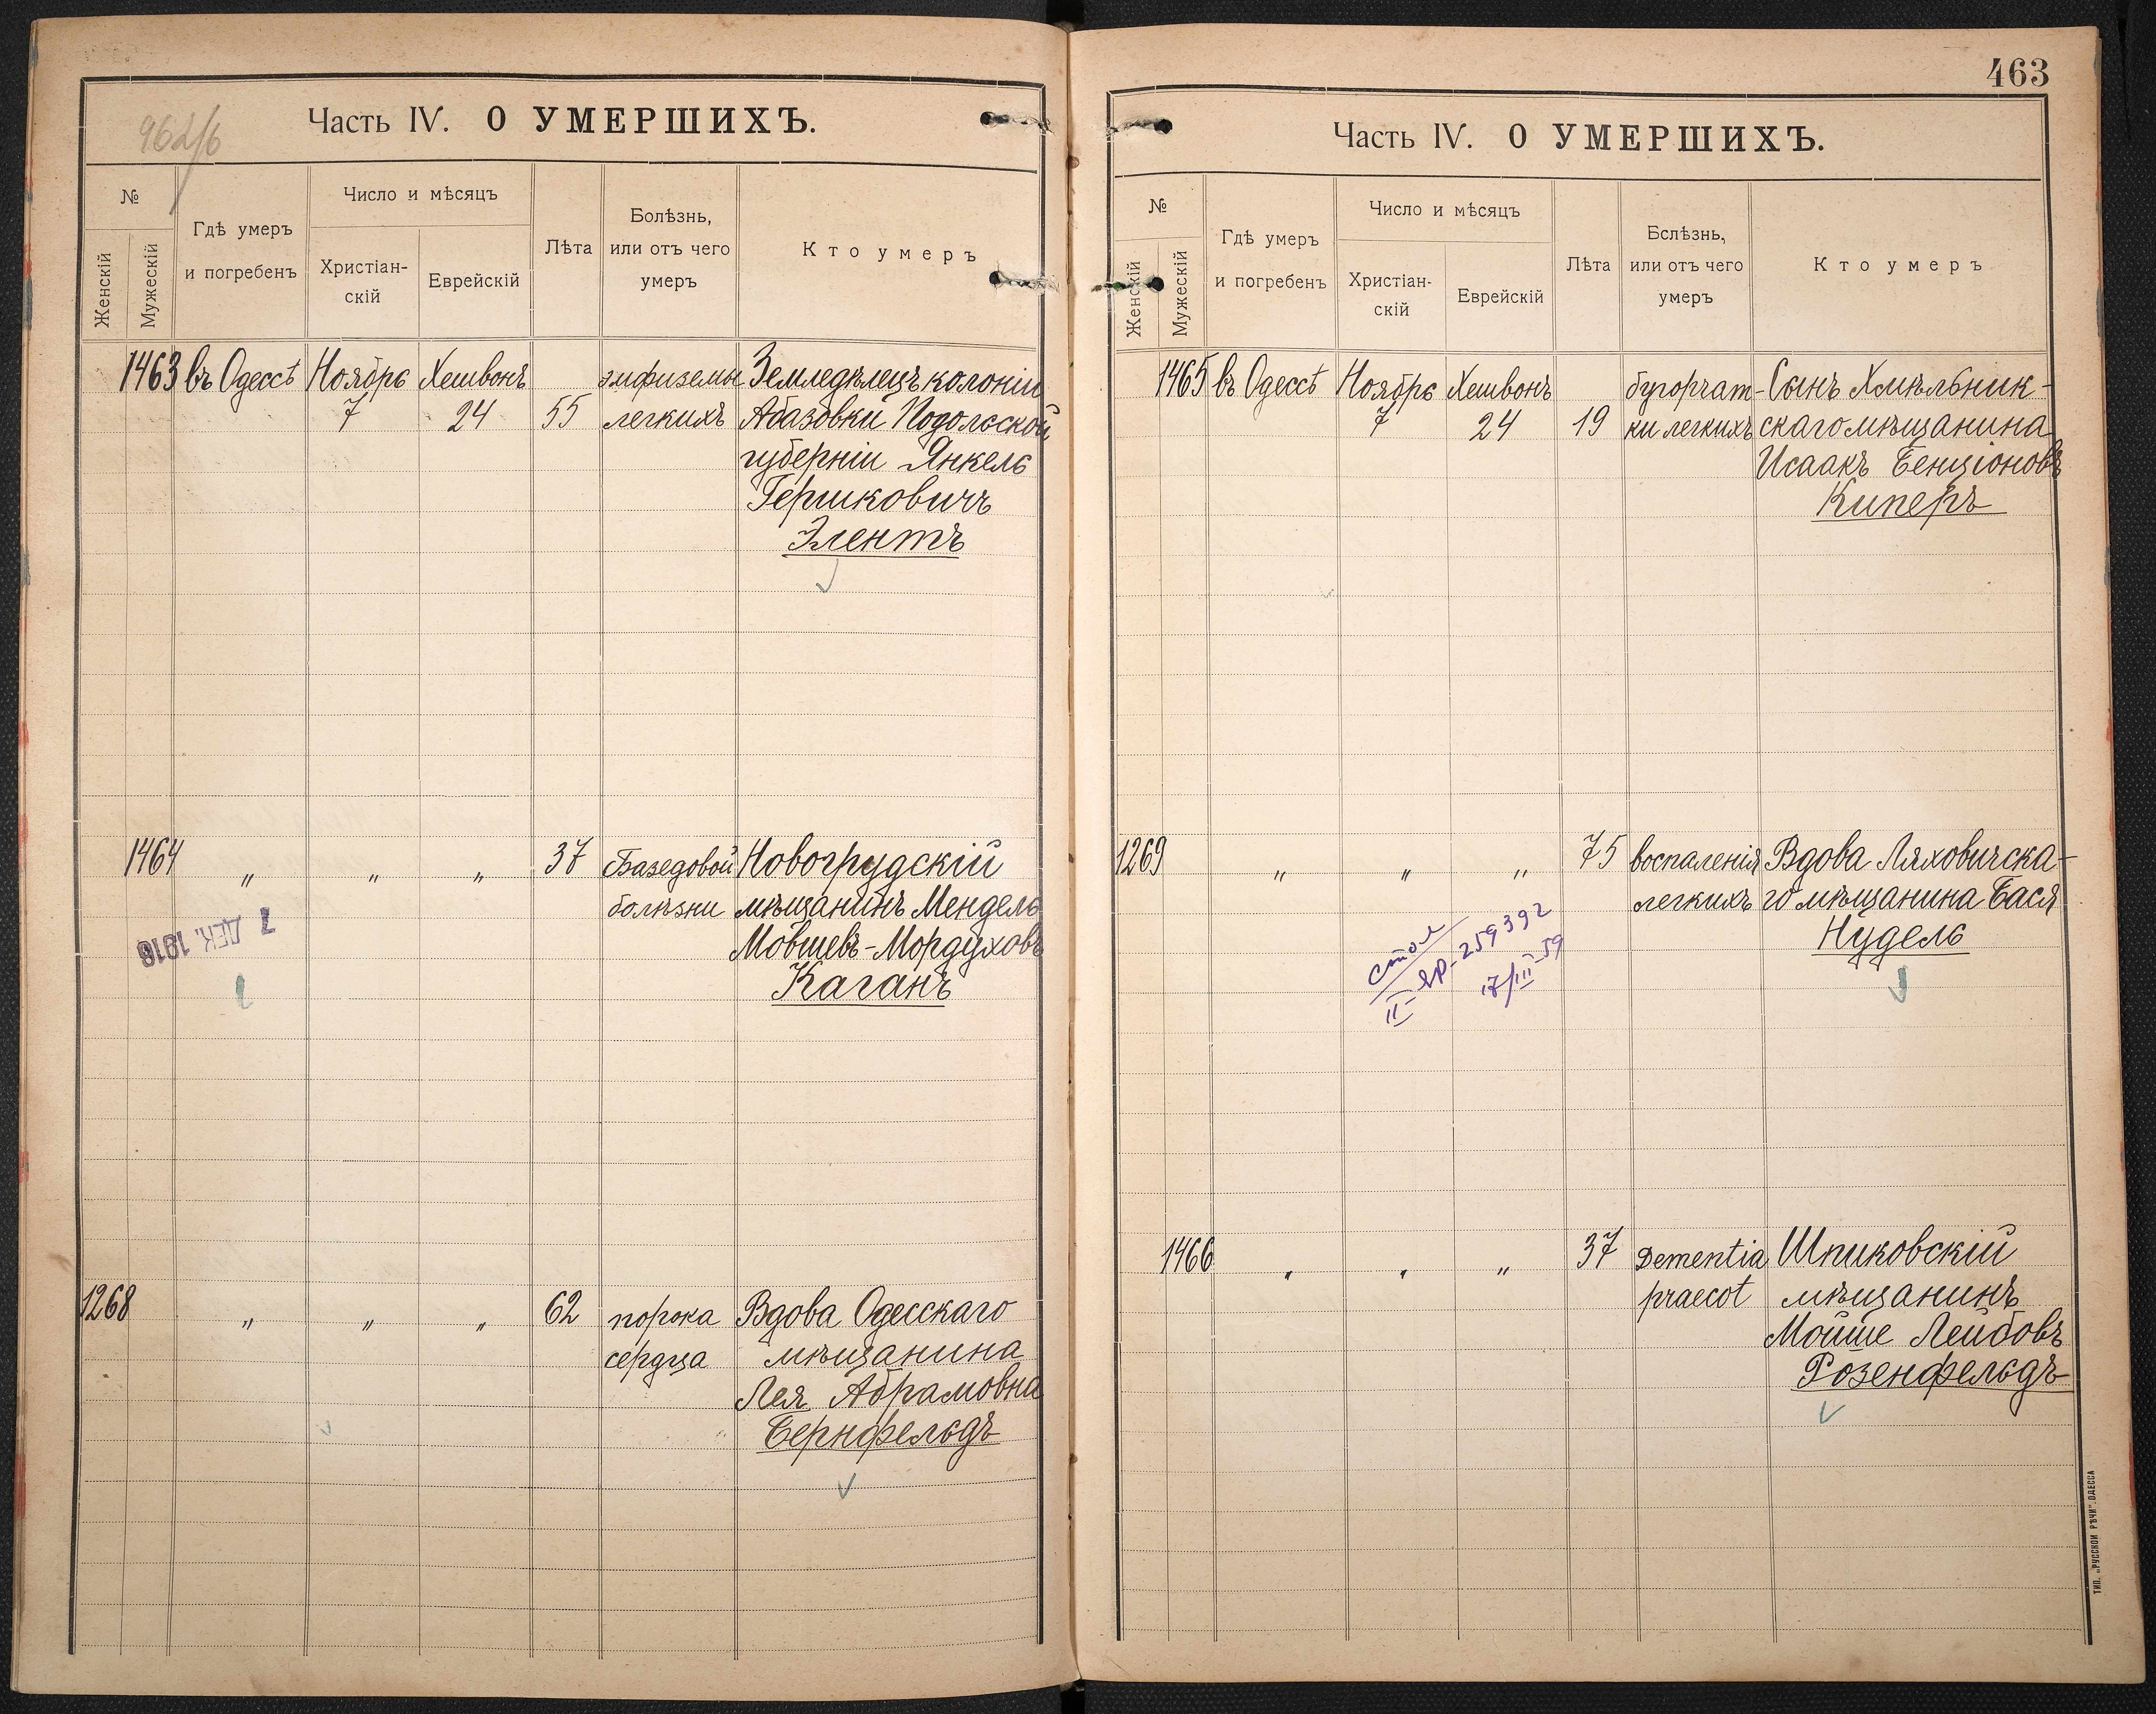 962/6
Часть IV. О УМЕРШИХЪ.
№
Женскій
Мужескій
Гдѣ умеръ
и погребенъ
Число и мѣсяцъ
Христіан-
скій
Еврейскій
Лѣта
Болѣзнь,
или отъ чего
умеръ
Кто умеръ
1463 въ Одессѣ Ноябрь Хешвонъ эмфиземы Земледѣлецъ колоніи
7 24 55 легкихъ Абазовки Подольской
губерніи Янкель
Гершковичъ
Элентъ
1464 " " " 37 Базедовой Новогрудскій
болѣзни мѣщанинъ Мендель
Мовшевъ-Мордуховъ
Каганъ
7 ДЕК. 1916
1268 " " " 62 порока Вдова Одесскаго
сердца мѣщанина
Лея Абрамовна
Бернфельдъ
463
Часть IV. О УМЕРШИХЪ.
№
Женскій
Мужескій
Гдѣ умеръ
и погребенъ
Число и мѣсяцъ
Христіан-
скій
Еврейскій
Лѣта
Бслѣзнь,
или отъ чего
умеръ
Кто умеръ
1465 въ Одессѣ Ноябрь Хешвонъ бугорчат- Сынъ Хмѣльник-
7 24 19 ки легкихъ скаго мѣщанина
Исаакъ Бенціоновъ
Киперъ
1269 " " " 75 воспаленія Вдова Ляховичска-
легкихъ го мѣщанина Бася
Нудель
стол
II-ЯР-259392
17/III-59
1466 " " " 37 Dementia Шпиковскій
praecot мѣщанинъ
Мойше Лейбовъ
Розенфельдъ
ТИП. „РУССКОЙ РѢЧИ“. ОДЕССА